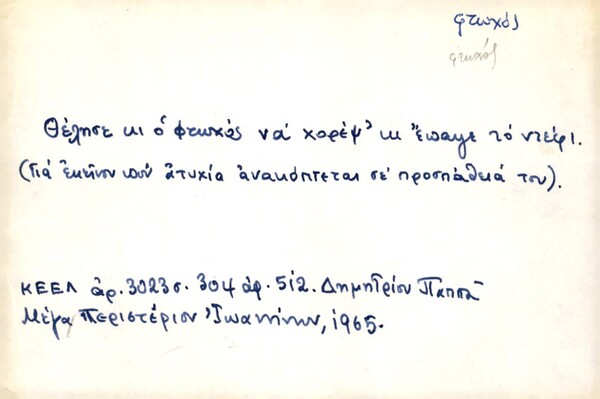 φτωχός
φτωχός
Θέλησε κι ὁ φτωχός νά χορέψ' κι ἔσπαγε τό ντέφι.
(Γιά ἐκεῖνον πού ἀτυχία ἀνακόπτεται σέ προσπάθειά του).
ΚΕΕΛ ἀρ. 3023 σ. 304 ἀρ. 512. Δημητρίου Παππᾶ
Μέγα Περιστέριον Ἰωαννίνων, 1965.